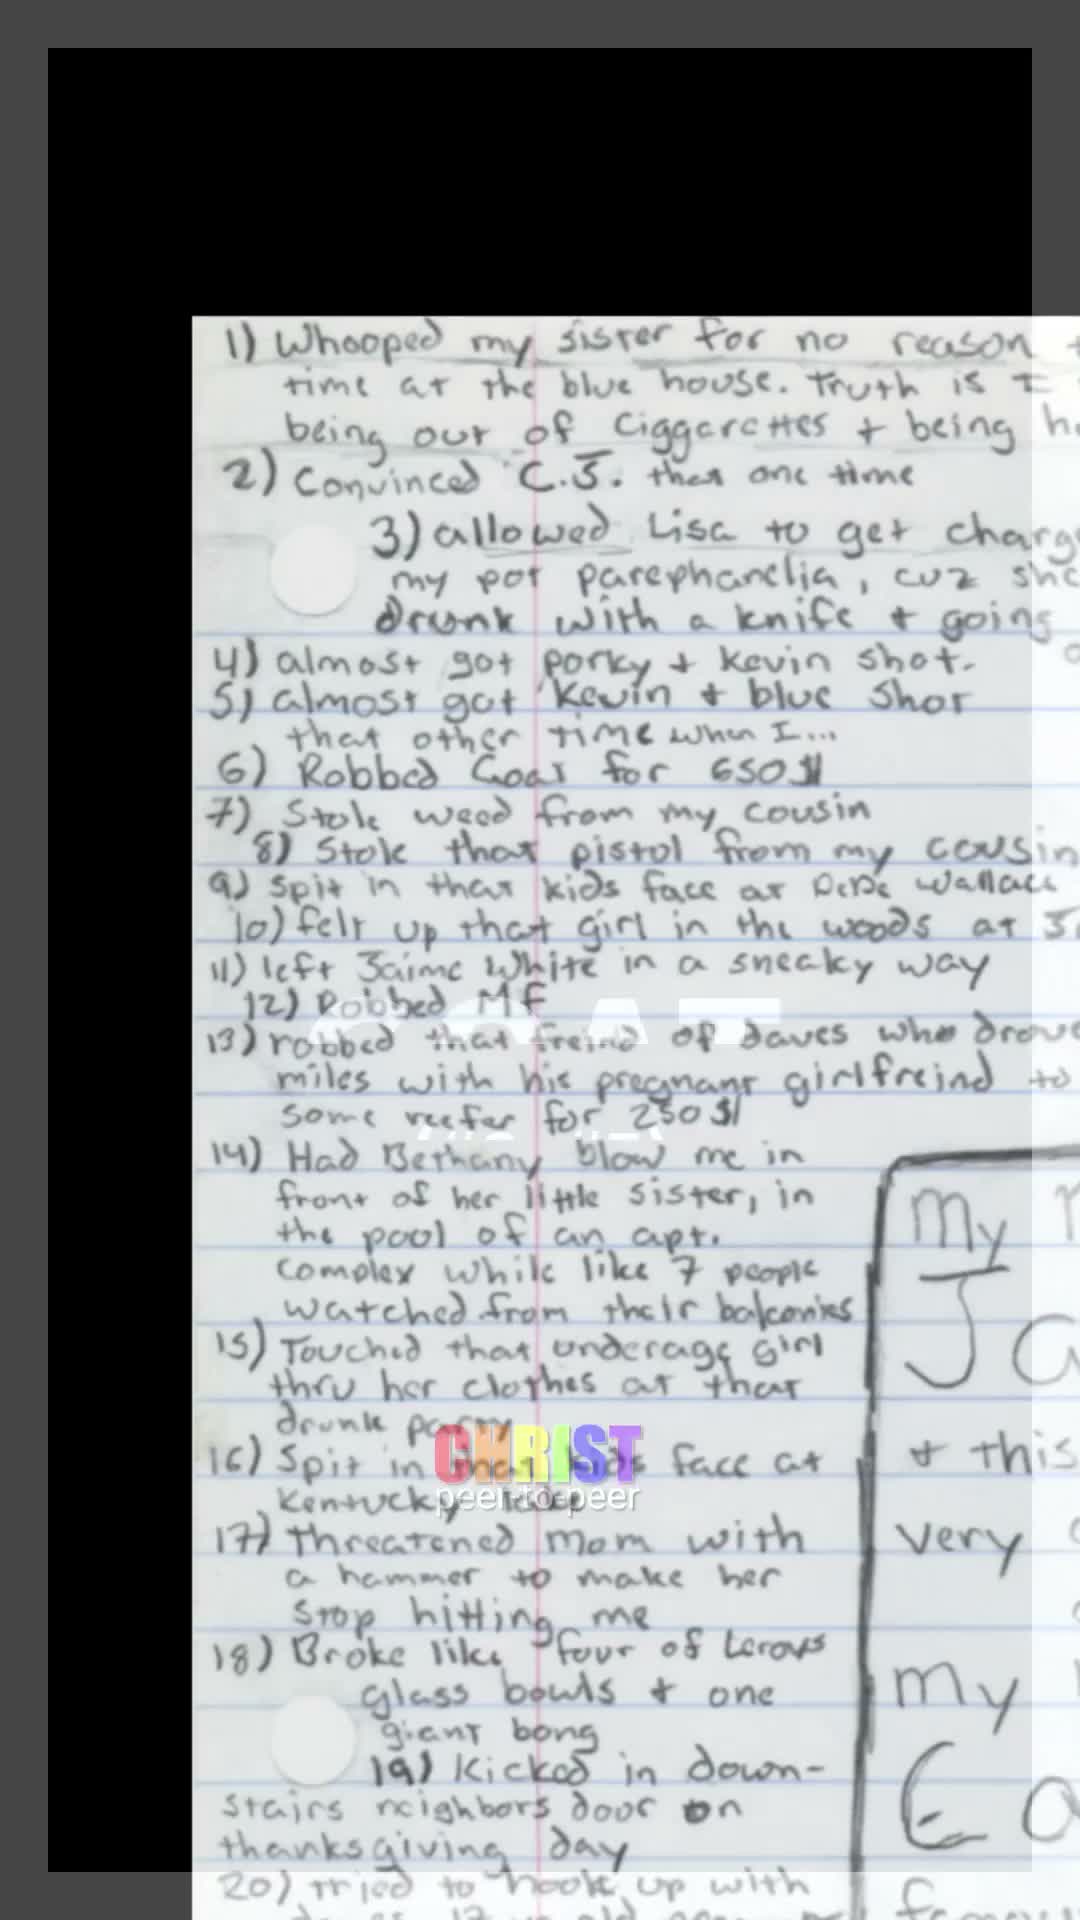 1) Whooped my sister for no reason
time at the blue house. Truth is I
being out of Ciggarettes + being
2) Convinced C.J. that one time
3) allowed Lisa to get
my pot parephanelia, cuz she
drunk with a knife + going
4) almost got porky + kevin shot.
5) almost got kevin + blue shot
that other time when I...
6) Robbed Goat for 650$
7) Stole weed from my cousin
8) Stole that pistol from my cousin
9) spit in that kids face at DeDe Wallace
10) felt up that girl in the woods at
11) left Jaime White in a sneaky way
12) Robbed MF
13) robbed that freind of daves who drove
miles with his pregnant girlfreind to
some reefer for 250$
14) Had Bethany blow me in
front of her little sister, in
the pool of an apt.
complex while like 7 people
watched from their balconies
15) Touched that underage girl
thru her clothes at that
drunk party
CHRIST
peer-to-peer
16) Spit in that kids face at
Kentucky
17) threatened mom with
a hammer to make her
stop hitting me
18) Broke like four of Leroys
glass bowls + one
giant bong
19) Kicked in down-
stairs neighbors door on
thanksgiving day
20) tried to hook up with
my
+ this
very
my